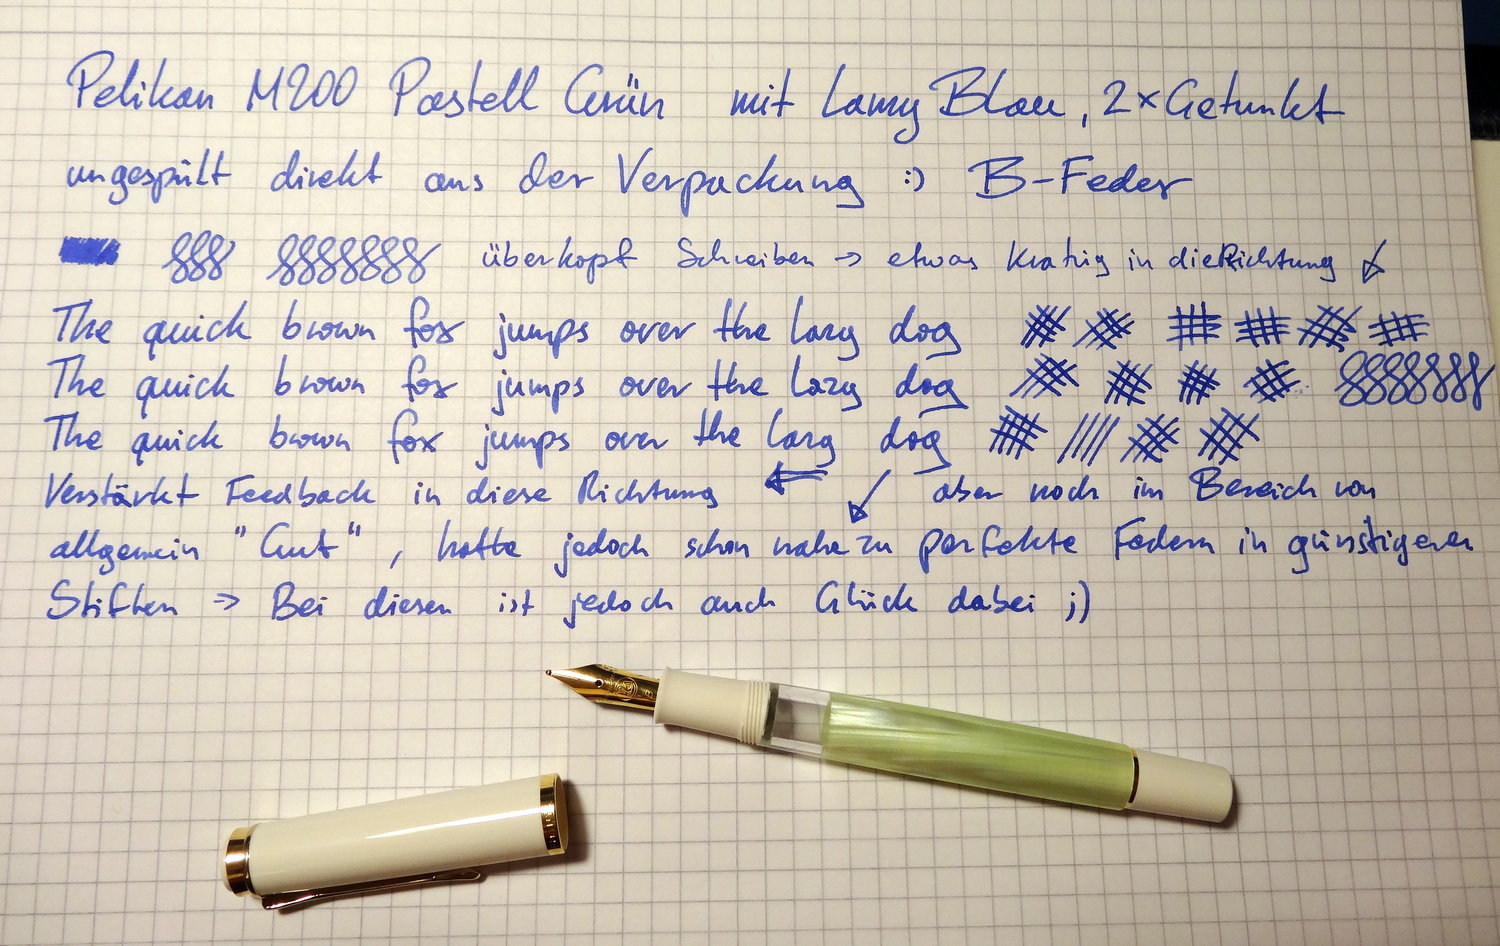 Pelikan M200 Pastell Grün mit Lamy Blau, 2x Getunkt
ungespült direkt aus der Verpackung :) B-Feder
überkopf Schreiben -> etwas kratzig in die Richtung ↙
The quick brown fox jumps over the lazy dog
The quick brown fox jumps over the lazy dog
The quick brown fox jumps over the lazy dog
Verstärkt Feedback in diese Richtung ← ↙ aber noch im Bereich von
allgemein "Gut", hatte jedoch schon nahezu perfekte Federn in günstigeren
Stiften -> Bei diesen ist jedoch auch Glück dabei ;)